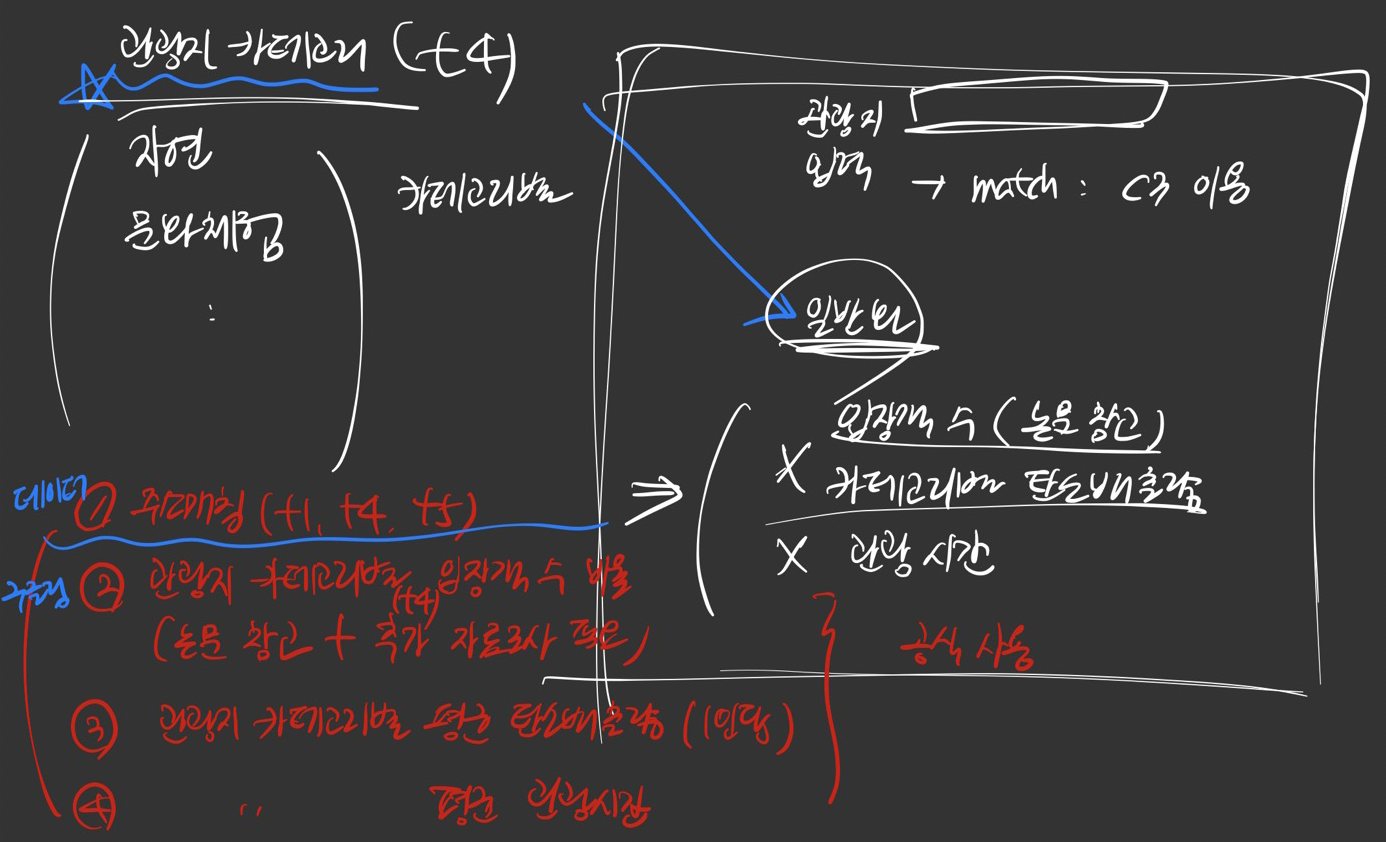 관광지 카테고리 (t4)
자연
문화체험
:
카테고리별
관광지
입력
→ match : C3 이용
일반화
입장객 수 (논문 참고)
X 카테고리별 탄소배출량
X 관광 시간
데이터
① (t1, t4, t5)
② 관광지 카테고리별 입장객 수 비율
(t4)
(논문 참고 + 추가 자료조사 필요)
③ 관광지 카테고리별 평균 탄소배출량 (1인당)
④ '' 평균 관광시간
공식 사용